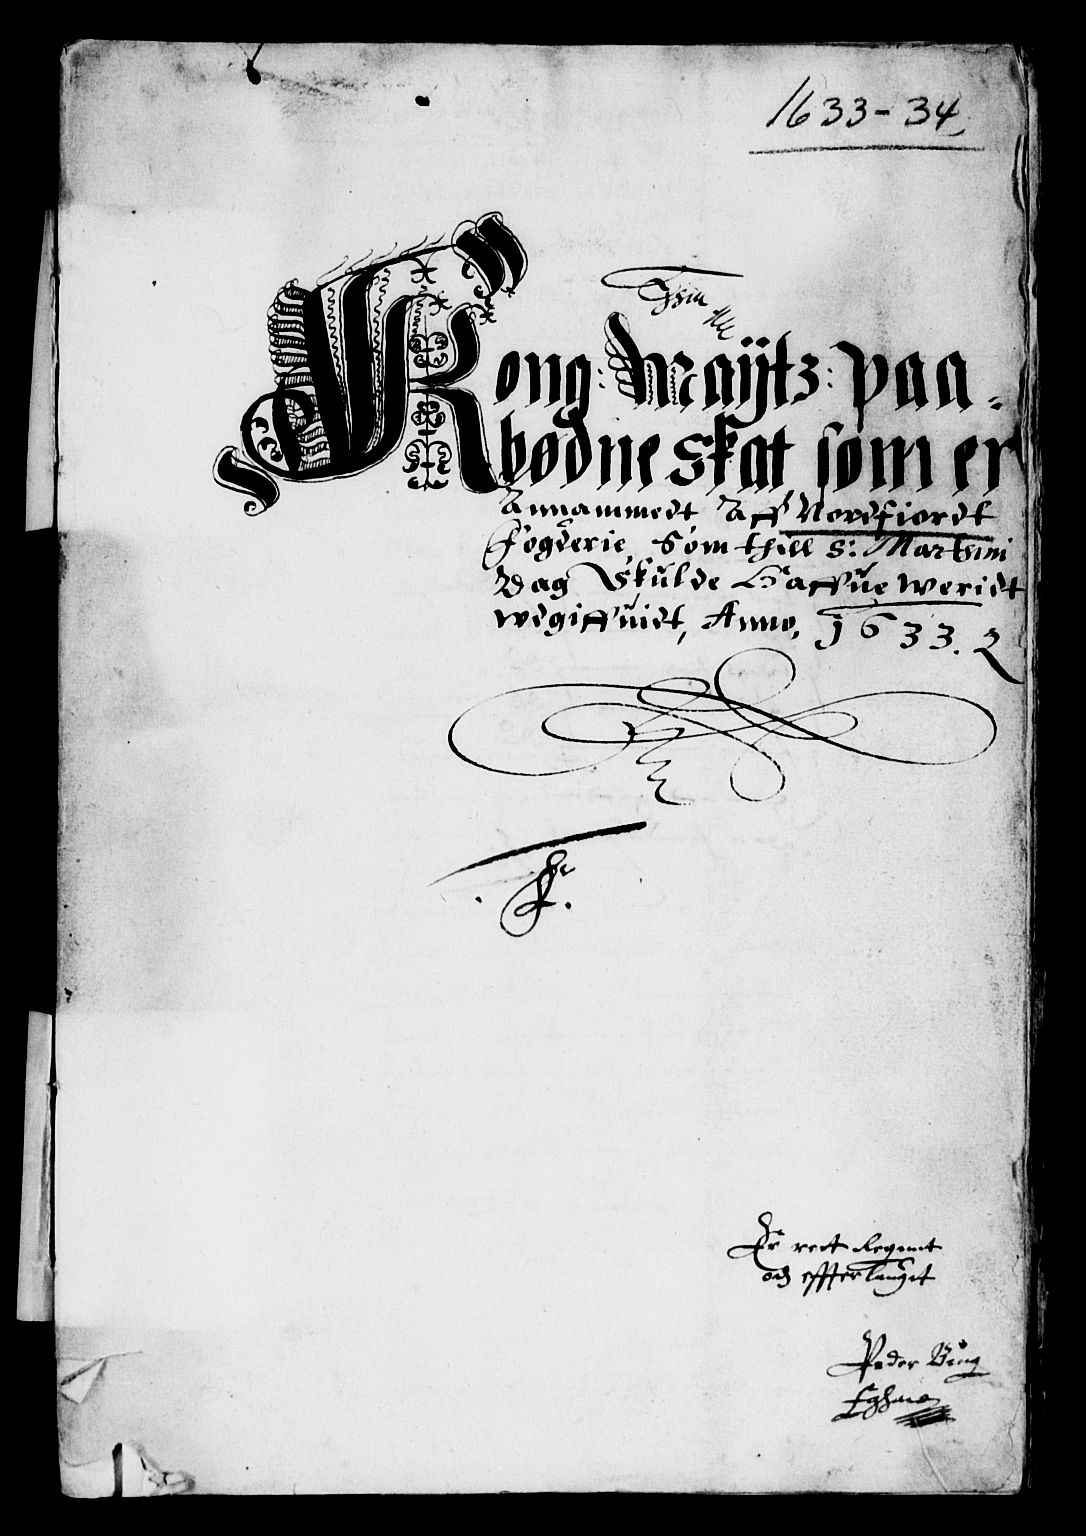 1633-34
Kong: Maÿtz: paa
bødne skat som er
Annammedt Aff Nordfiordt
Fogderie, Som thill S: Martini
Dag Skulde Haffue Weridt
wdgiffuidt, Anno, 1633.
Er rett Regnnt
och effterlanget
Peder